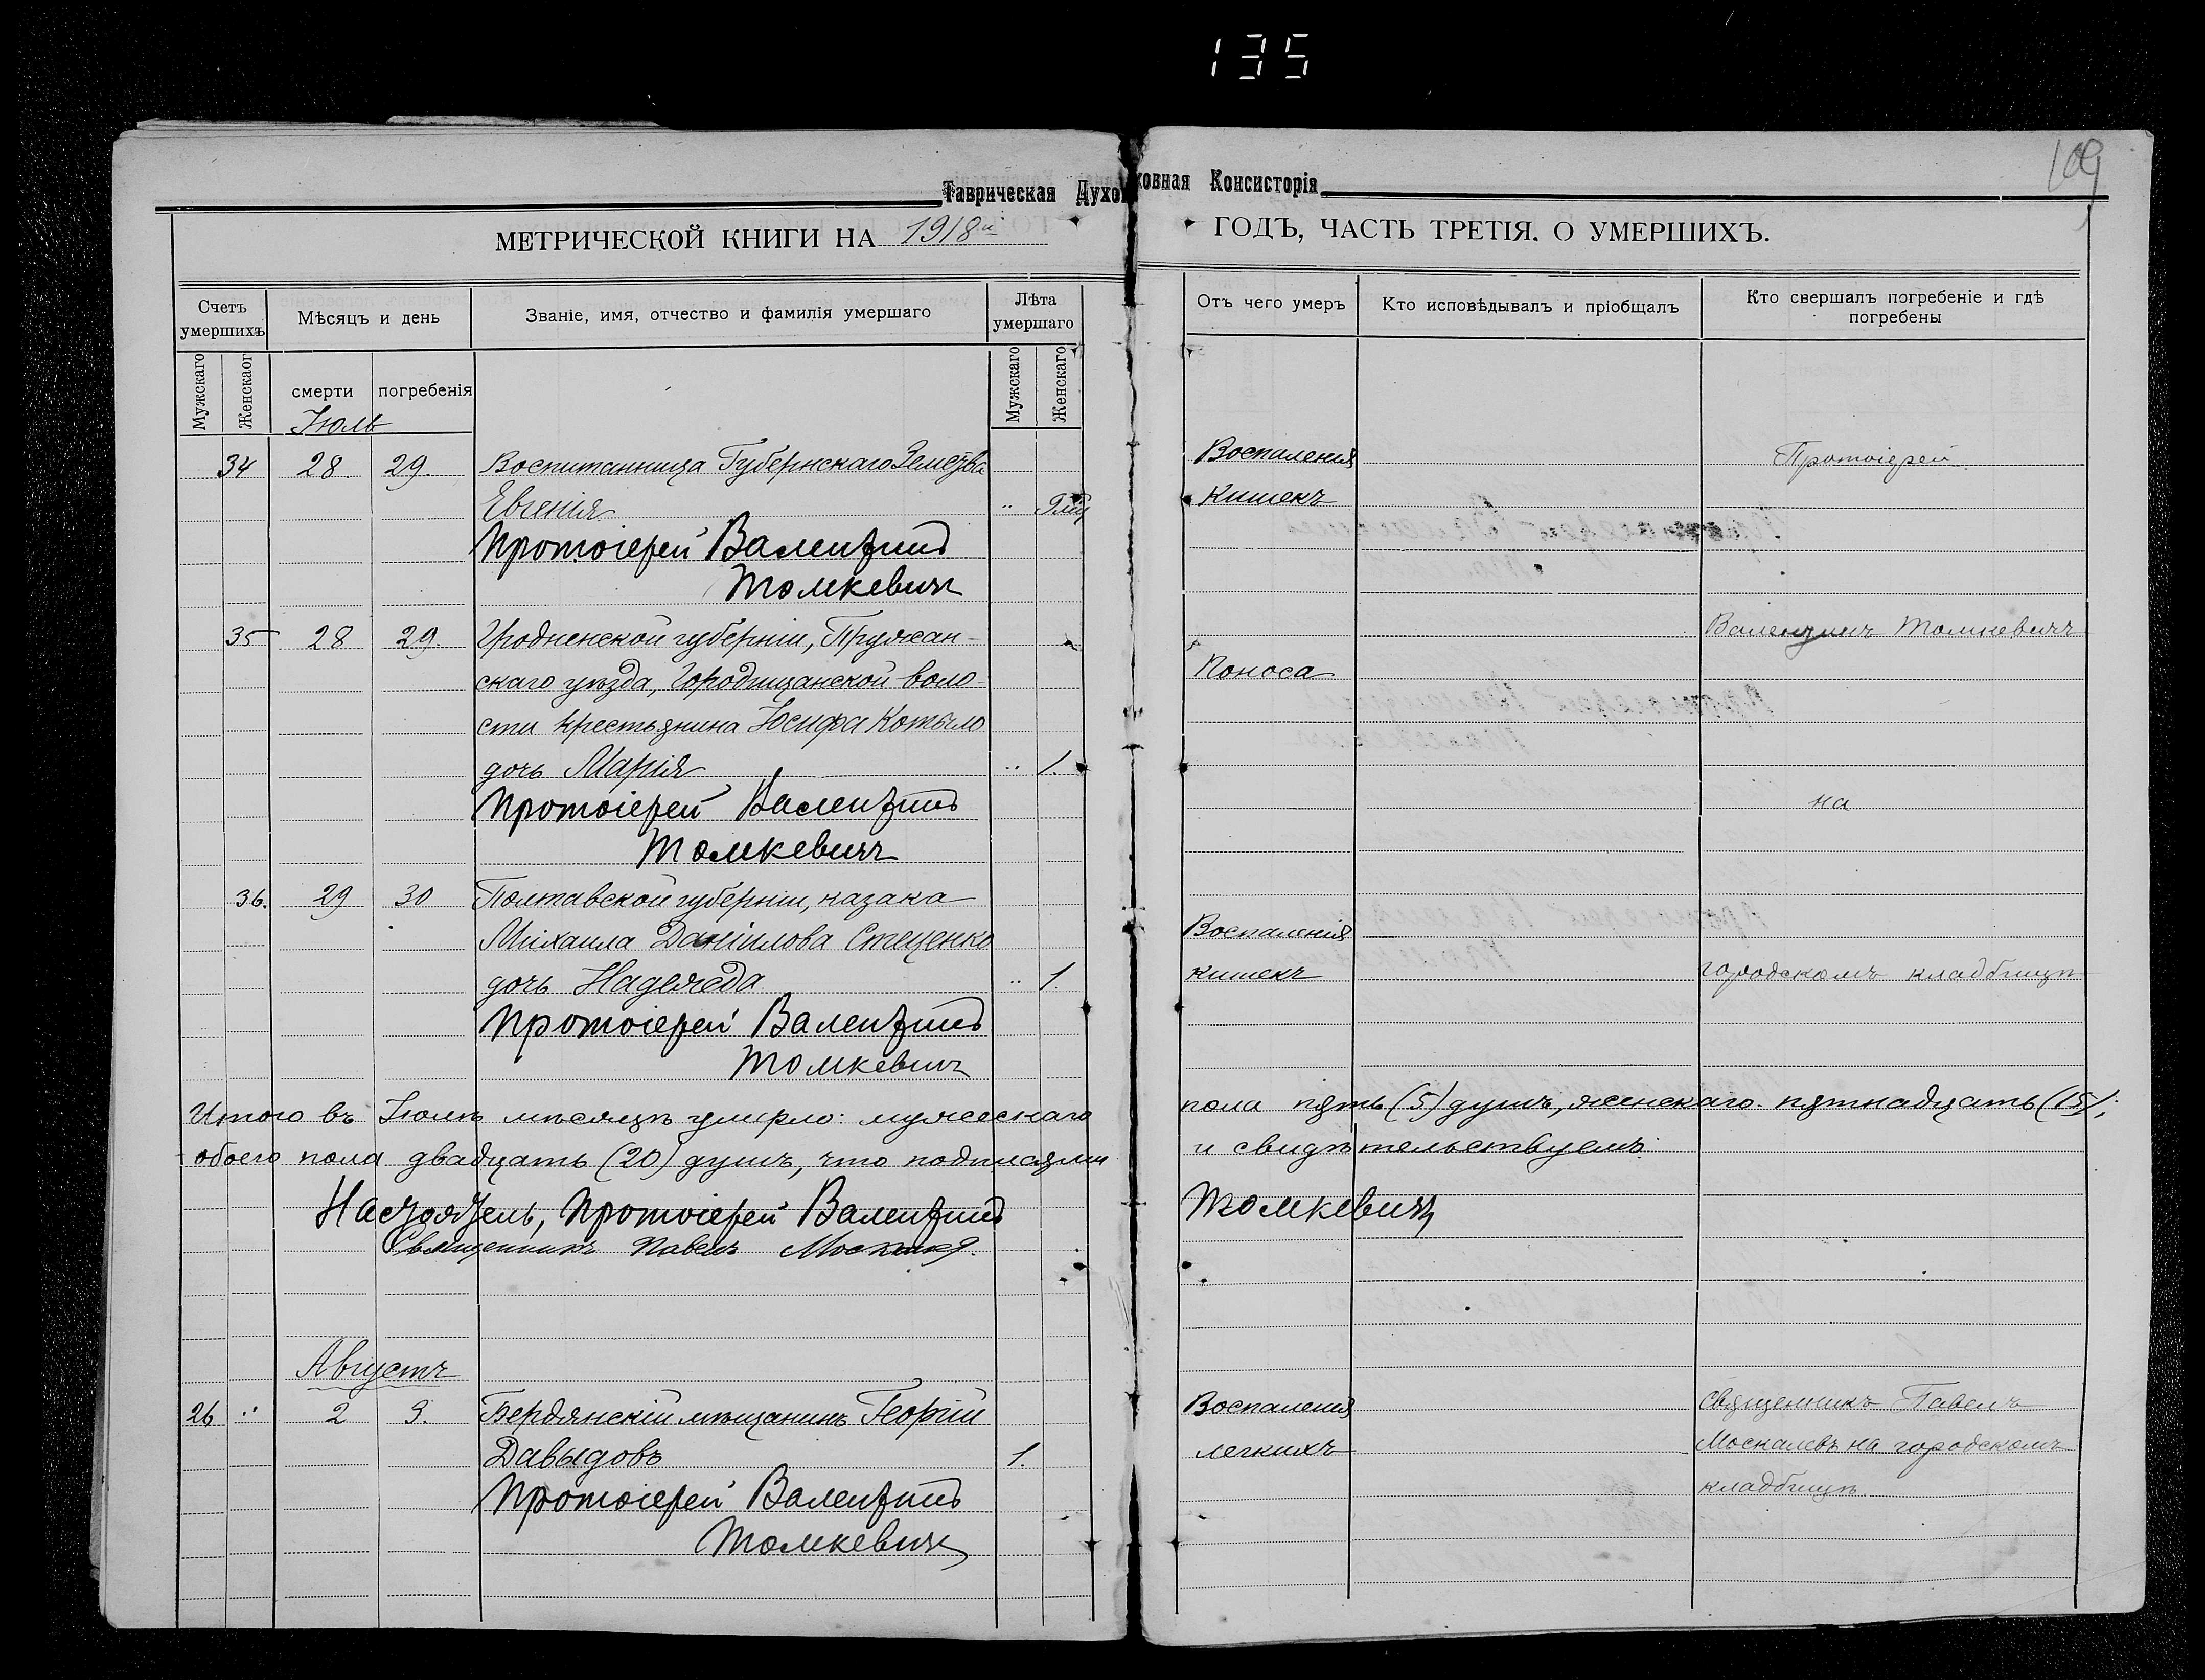 135
109
Таврическая Духовная Консисторія
МЕТРИЧЕСКОЙ КНИГИ НА 1918й ГОДЪ, ЧАСТЬ ТРЕТІЯ. О УМЕРШИХЪ.
Счетъ умершихъ
Мѣсяцъ и день
Званіе, имя, отчество и фамилія умершаго
Лѣта умершаго
Отъ чего умеръ
Кто исповѣдывалъ и пріобщалъ
Кто свершалъ погребеніе и гдѣ погребены
Мужскаго
Женскаог
смерти
погребенія
Мужскаго
Женскаго
Іюль
34 28 29. Воспитанница Губернскаго Земства Воспаленія Протоіерей
Евгенія кишекъ
Протоіерей Валентинъ
Томкевичъ
35 28 29. Гродненской губерніи, Пружан- Валентинъ Томкевичъ
скаго уѣзда, Городищанской воло- Поноса
сти крестьянина Іосифа Котыло
дочь Марія 1.
Протоіерей Валентинъ на
Томкевичъ
36. 29 30 Полтавской губерніи, казака
Михаила Даніилова Стеценко Воспаленія
дочь Надежда 1. кишекъ городскомъ кладбищѣ
Протоіерей Валентинъ
Томкевичъ
Итого въ Іюлѣ мѣсяцѣ умерло: мужескаго пола пять (5) душъ, женскаго пятнадцать (15),
обоего пола двадцать (20) душъ, что подписями и свидѣтельствуемъ:
Настоятель, Протоіерей Валентинъ Томкевичъ
Священникъ Павелъ
Августъ
26 2 3. Бердянскій мѣщанинъ Георгій Воспаленія Священникъ Павелъ
Давыдовъ 1. легкихъ Москалевъ на городскомъ
Протоіерей Валентинъ кладбищѣ.
Томкевичъ